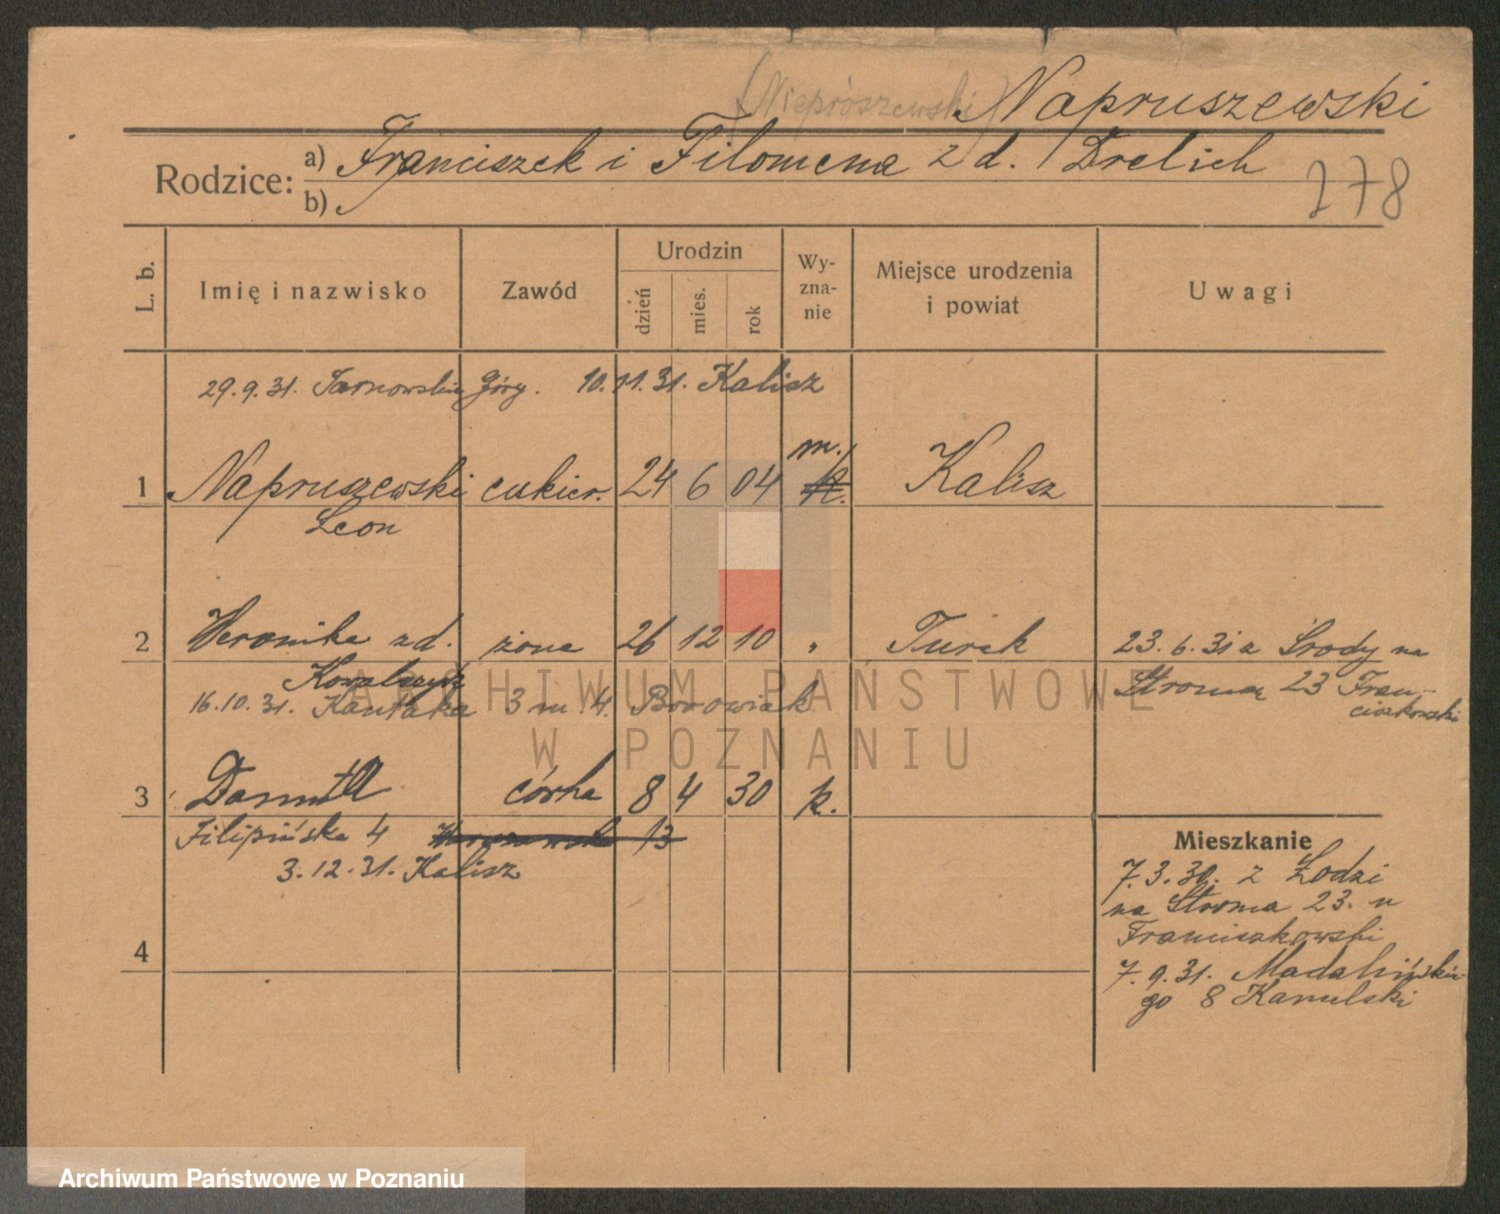 (Nieproszewski) Napruszewski
Rodzice: a) Franciszek i Filomena z d. Drelich
b)
278
L. b.
Imię i nazwisko
Zawód
Urodzin
dzień
mies.
rok
Wy-
zna-
nie
Miejsce urodzenia
i powiat
Uwagi
29.9.31. Tarnowskie Góry. 10.11.31. Kalisz
m.
1 Napruszewski cukier. 24 6 04 Kalisz
Leon
2 Weronika zd. żona 26 12 10 " Turek 23.6.31 z Środy na
Kowalczyk Stroma 23 Fran-
16.10.31. Kantaka 3 m. 4. Borowiak ciszkowski
ARCHIWUM PAŃSTWOWE
W POZNANIU
3 Danuta córka 8 4 30 k.
Filipińska 4 13
3.12.31. Kalisz
Mieszkanie
7.3.30. z Łodzi
na Stroma 23. u
Franciszkowski
7.9.31. Madalińskie-
go 8 Kamulski
4
Archiwum Państwowe w Poznaniu